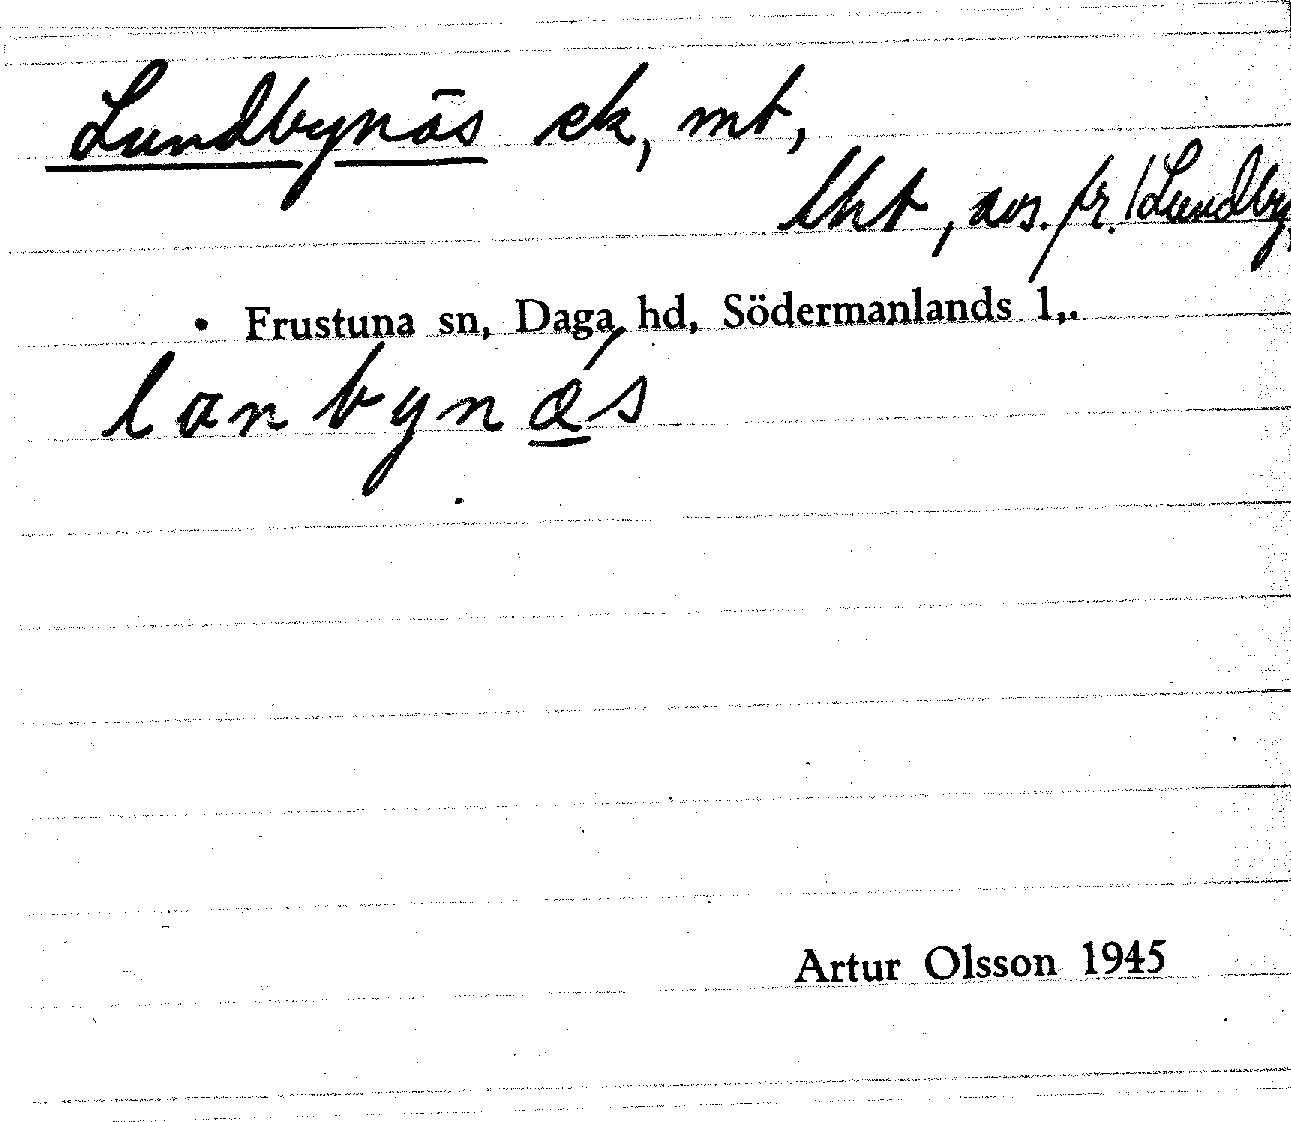 Lundbynäs ek, mt,
lht, avs. fr. Lundby,
• Frustuna sn, Daga hd, Södermanlands l,.
lanbynä́s
Artur Olsson 1945